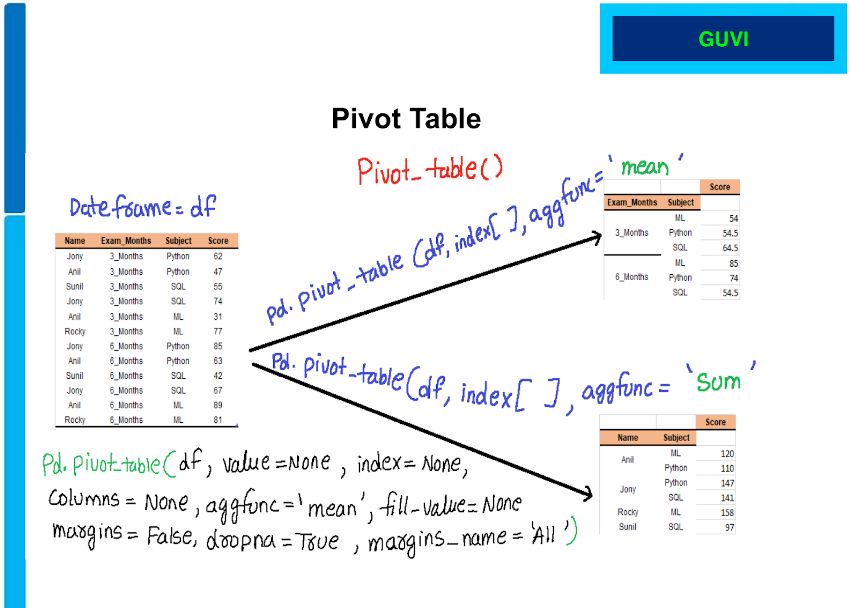 GUVI
Pivot Table
Pivot_table()
Dateframe = df
Name Exam_Months Subject Score
Jony 3_Months Python 62
Anil 3_Months Python 47
Sunil 3_Months SQL 55
Jony 3_Months SQL 74
Anil 3_Months ML 31
Rocky 3_Months ML 77
Jony 6_Months Python 85
Anil 6_Months Python 63
Sunil 6_Months SQL 42
Jony 6_Months SQL 67
Anil 6_Months ML 89
Rocky 6_Months ML 81
pd. pivot_table (df, index[ ], aggfunc= 'mean'
Score
Exam_Months Subject
ML 54
3_Months Python 54.5
SQL 64.5
ML 85
6_Months Python 74
SQL 54.5
Pd. pivot_table(df, index[ ], aggfunc = 'Sum'
Score
Name Subject
Anil ML 120
Python 110
Jony Python 147
SQL 141
Rocky ML 158
Sunil SQL 97
Pd. pivot_table(df, value=None, index = None,
Columns = None, aggfunc='mean', fill_value=None
margins = False, dropna=True, margins_name = 'All')